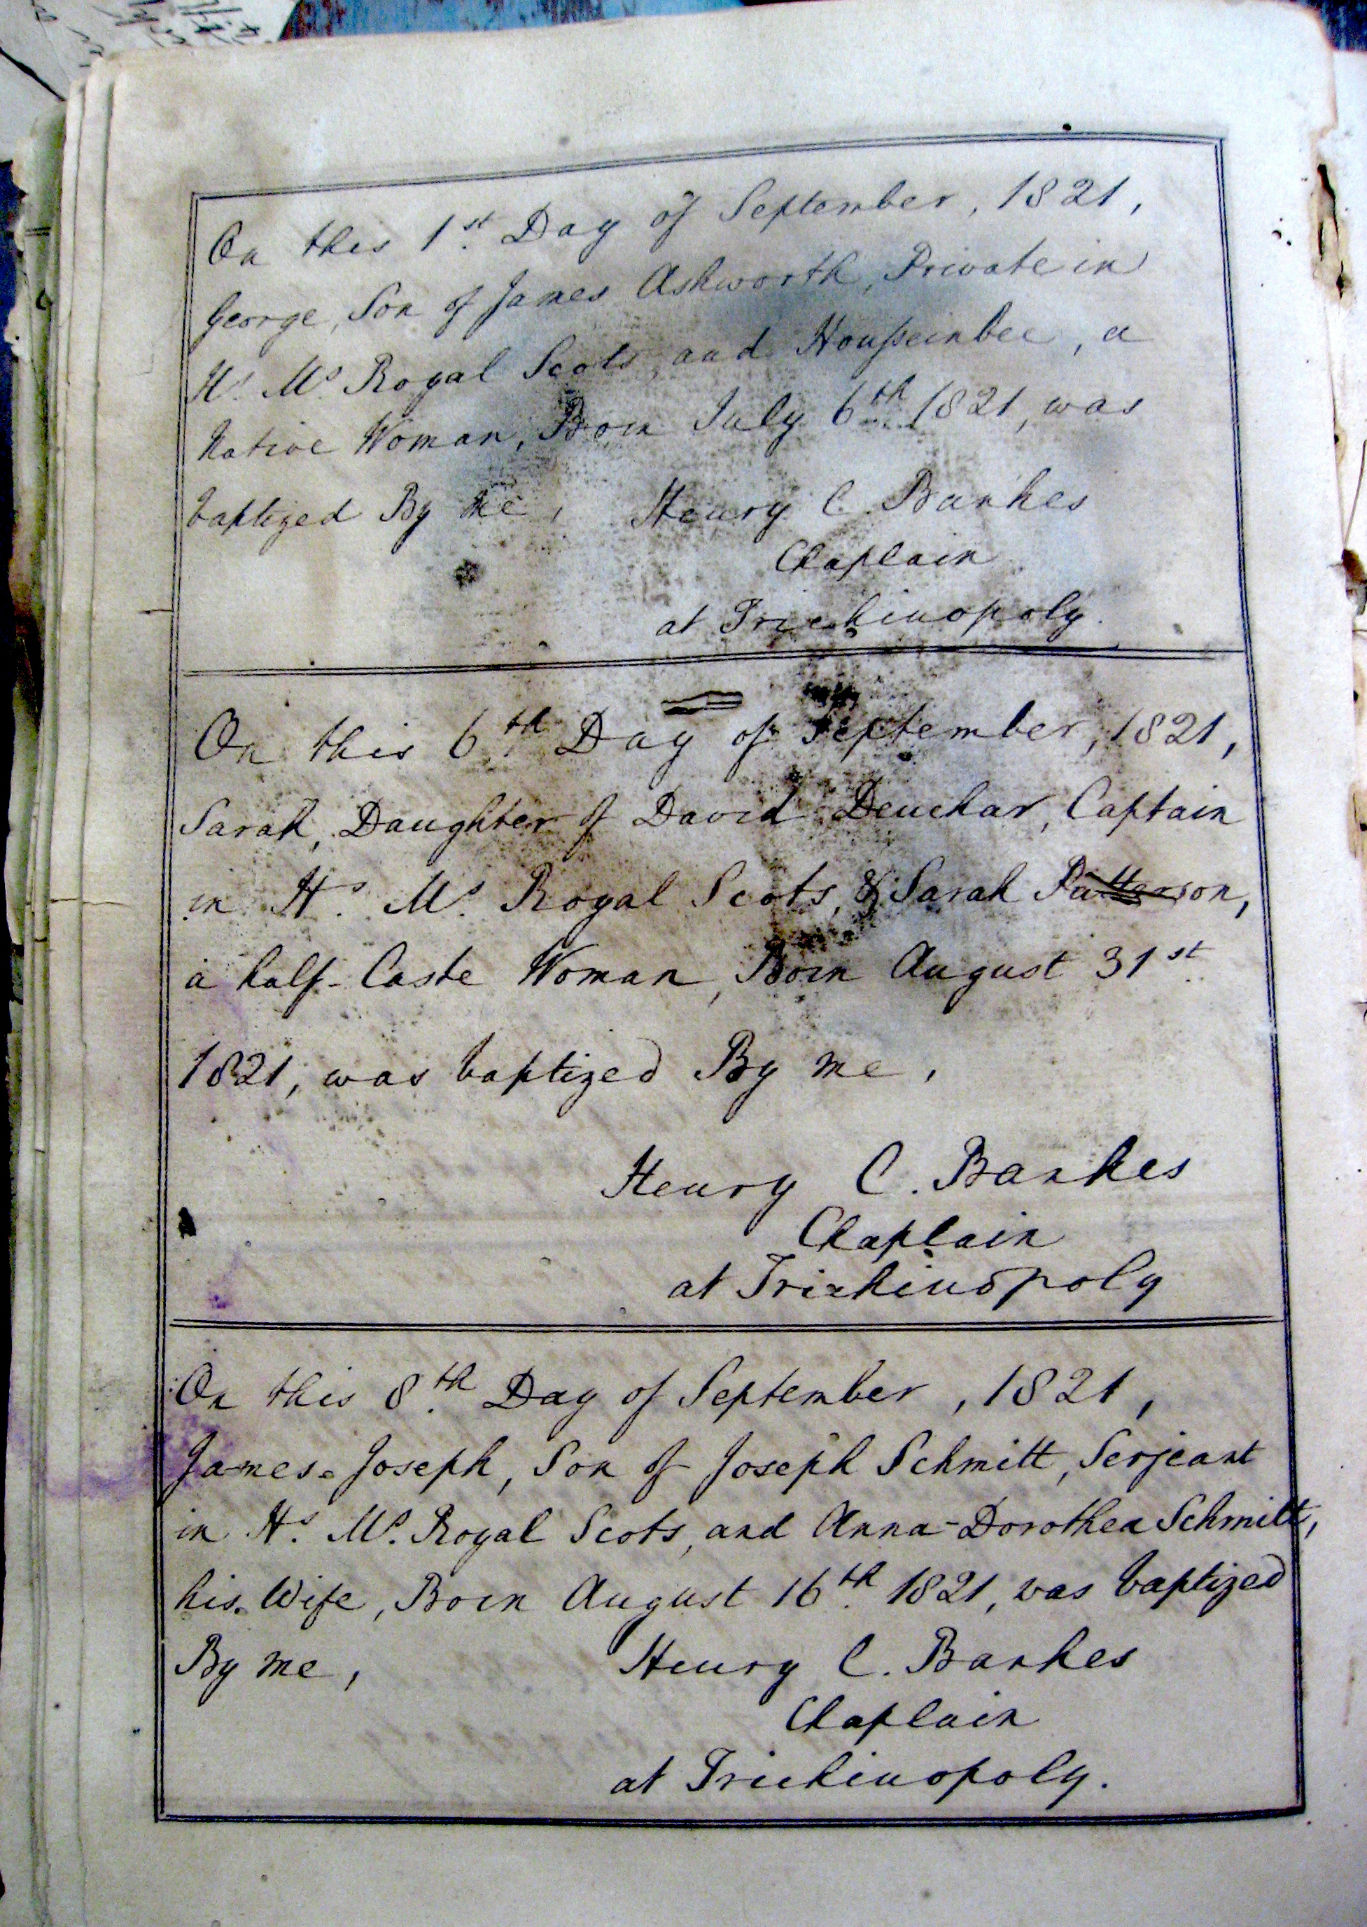 On this 1st Day of September, 1821,
George, Son of James Ashworth, Private in
Hs. Ms. Royal Scots, and Housseinbee, a
Native Woman, Born July 6th 1821, was
baptized By me, Henry C. Bankes
Chaplain
at Trichinopoly.
On this 6th Day of September, 1821,
Sarah, Daughter of David Deuchar, Captain
in Hs. Ms. Royal Scots, & Sarah Patterson,
a half-Caste Woman, Born August 31st
1821, was baptized By me,
Henry C. Bankes
Chaplain
at Trichinopoly
On this 8th Day of September, 1821,
James-Joseph, Son of Joseph Schmitt, Serjeant
in Hs. Ms. Royal Scots, and Anna-Dorothea Schmitt,
his Wife, Born August 16th 1821, was baptized
By me, Henry C. Bankes
Chaplain
at Trichinopoly.